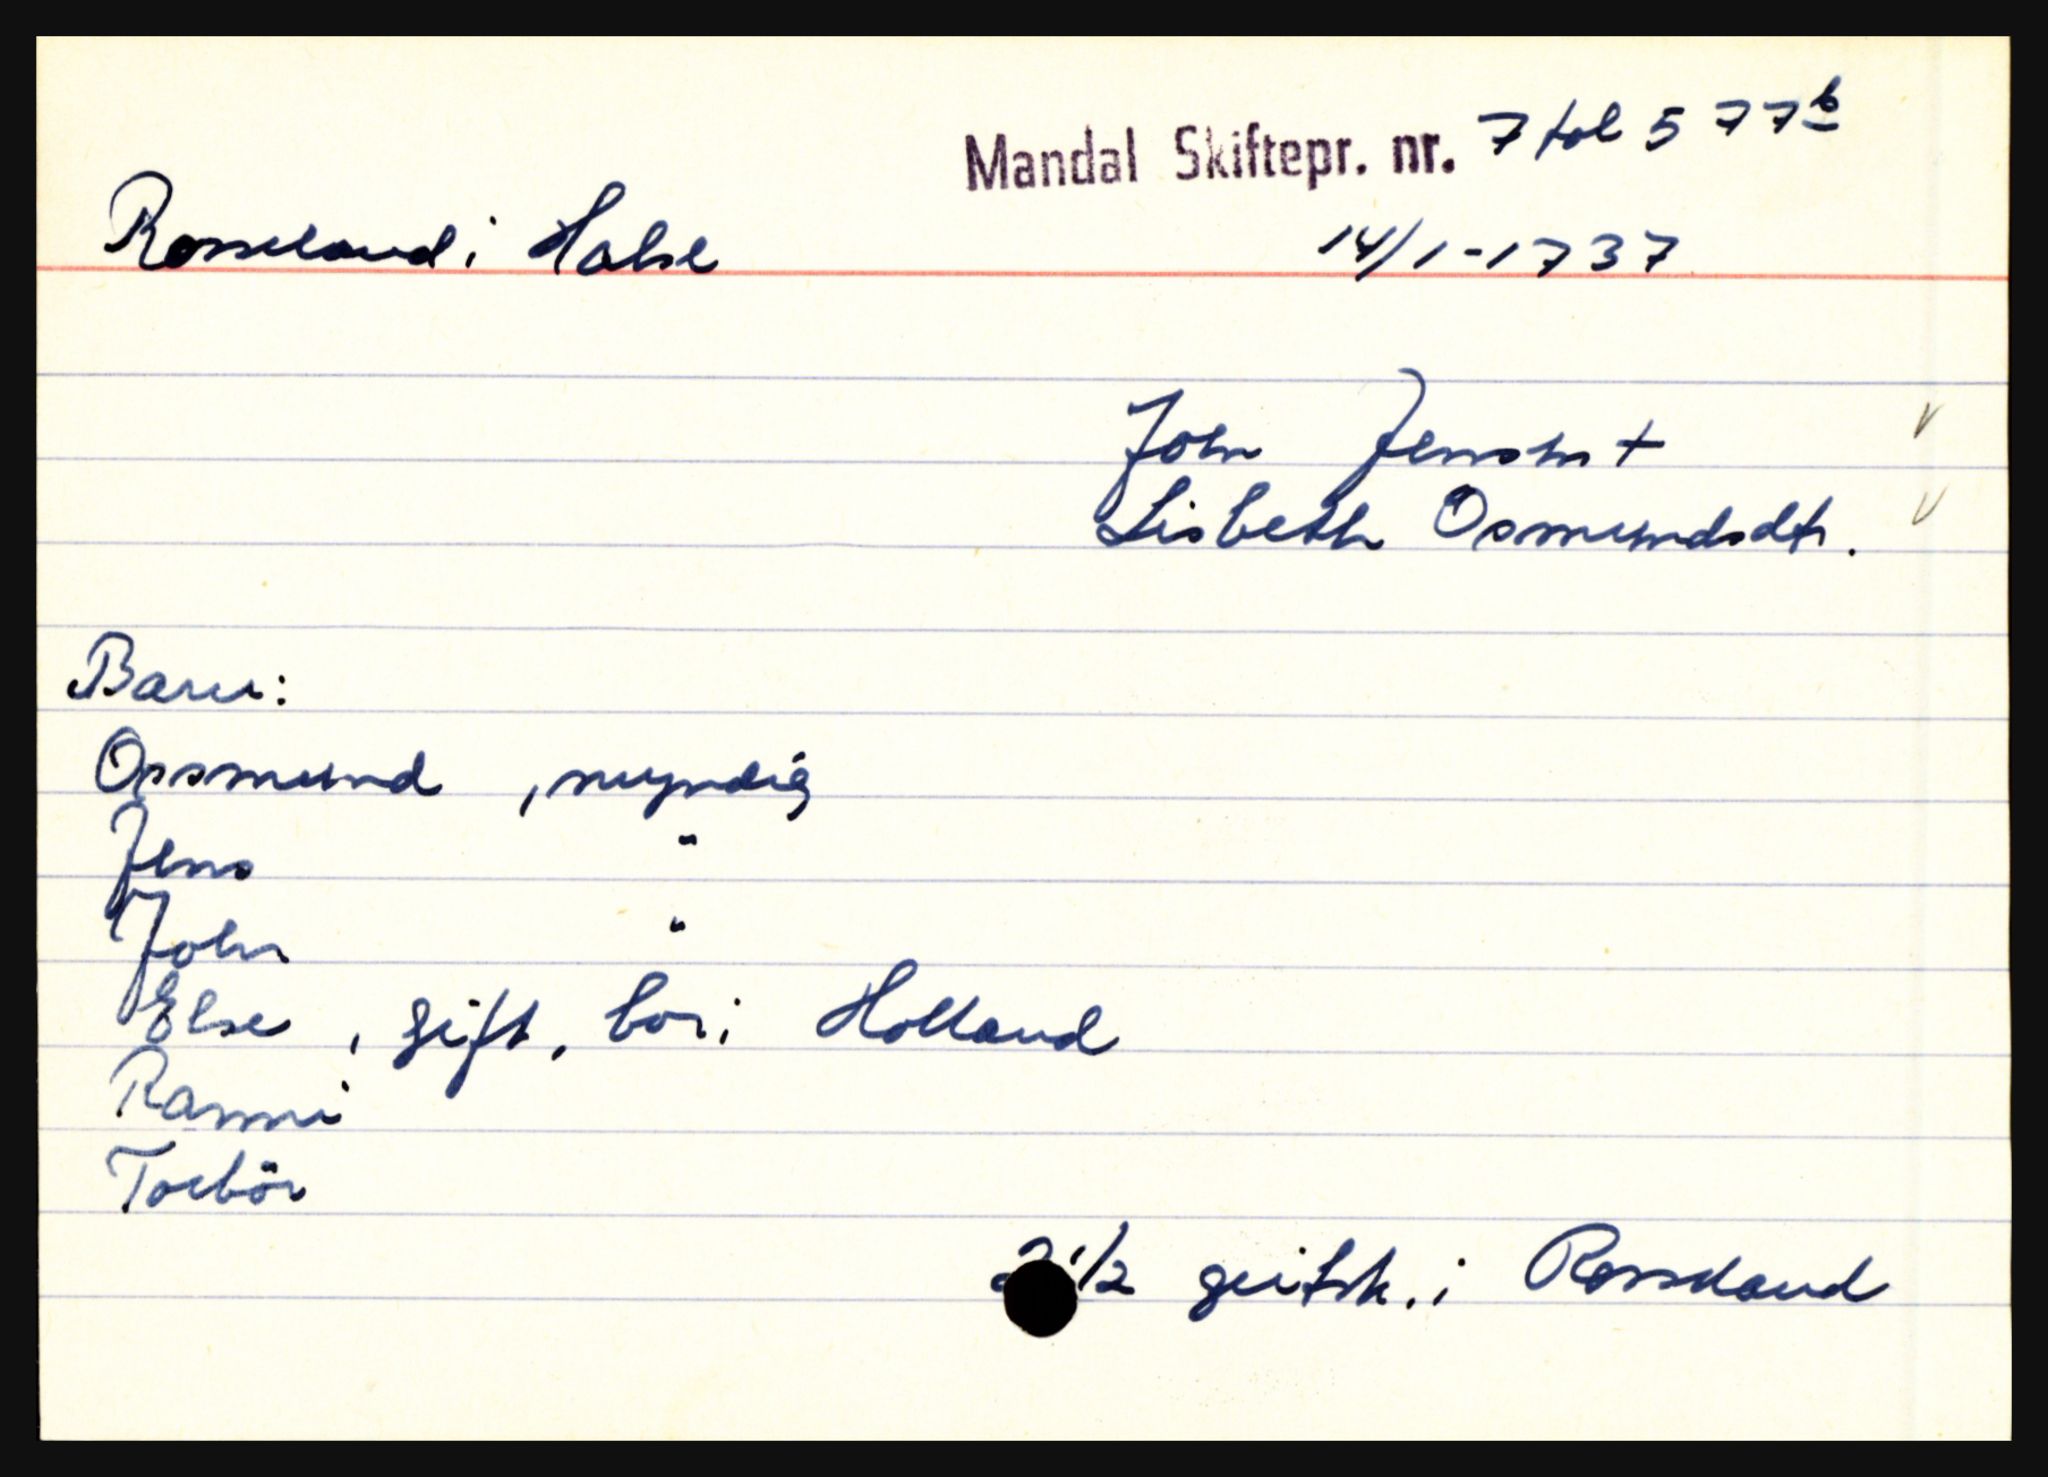 Mandal Skiftepr. nr. 7 fol 577b
Rosseland i Halse 14/1-1737
John Jensen +
Lisbeth Osmundsdtr.
Barn:
Ossmund , myndig
Jens "
John "
Else , gift, bor i Holland
Ranni
Torbör
2 1/2 geitsk. i Rosseland